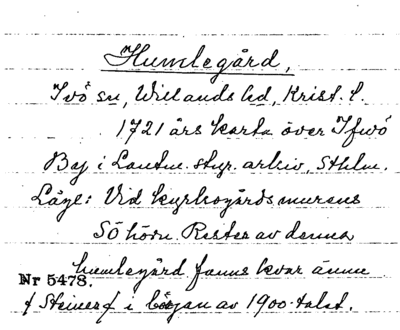 Humlegård,
Ivö sn, Willands hd, Krist. l.
1721 års karta över Ifwö
By i Lantm. styr. arkiv, Sthlm.
Läge: Vid kyrkogårdsmurens
Sö hörn. Rester av denna
humlegård fanns kvar ännu
Nr 5478.
i början av 1900-talet.